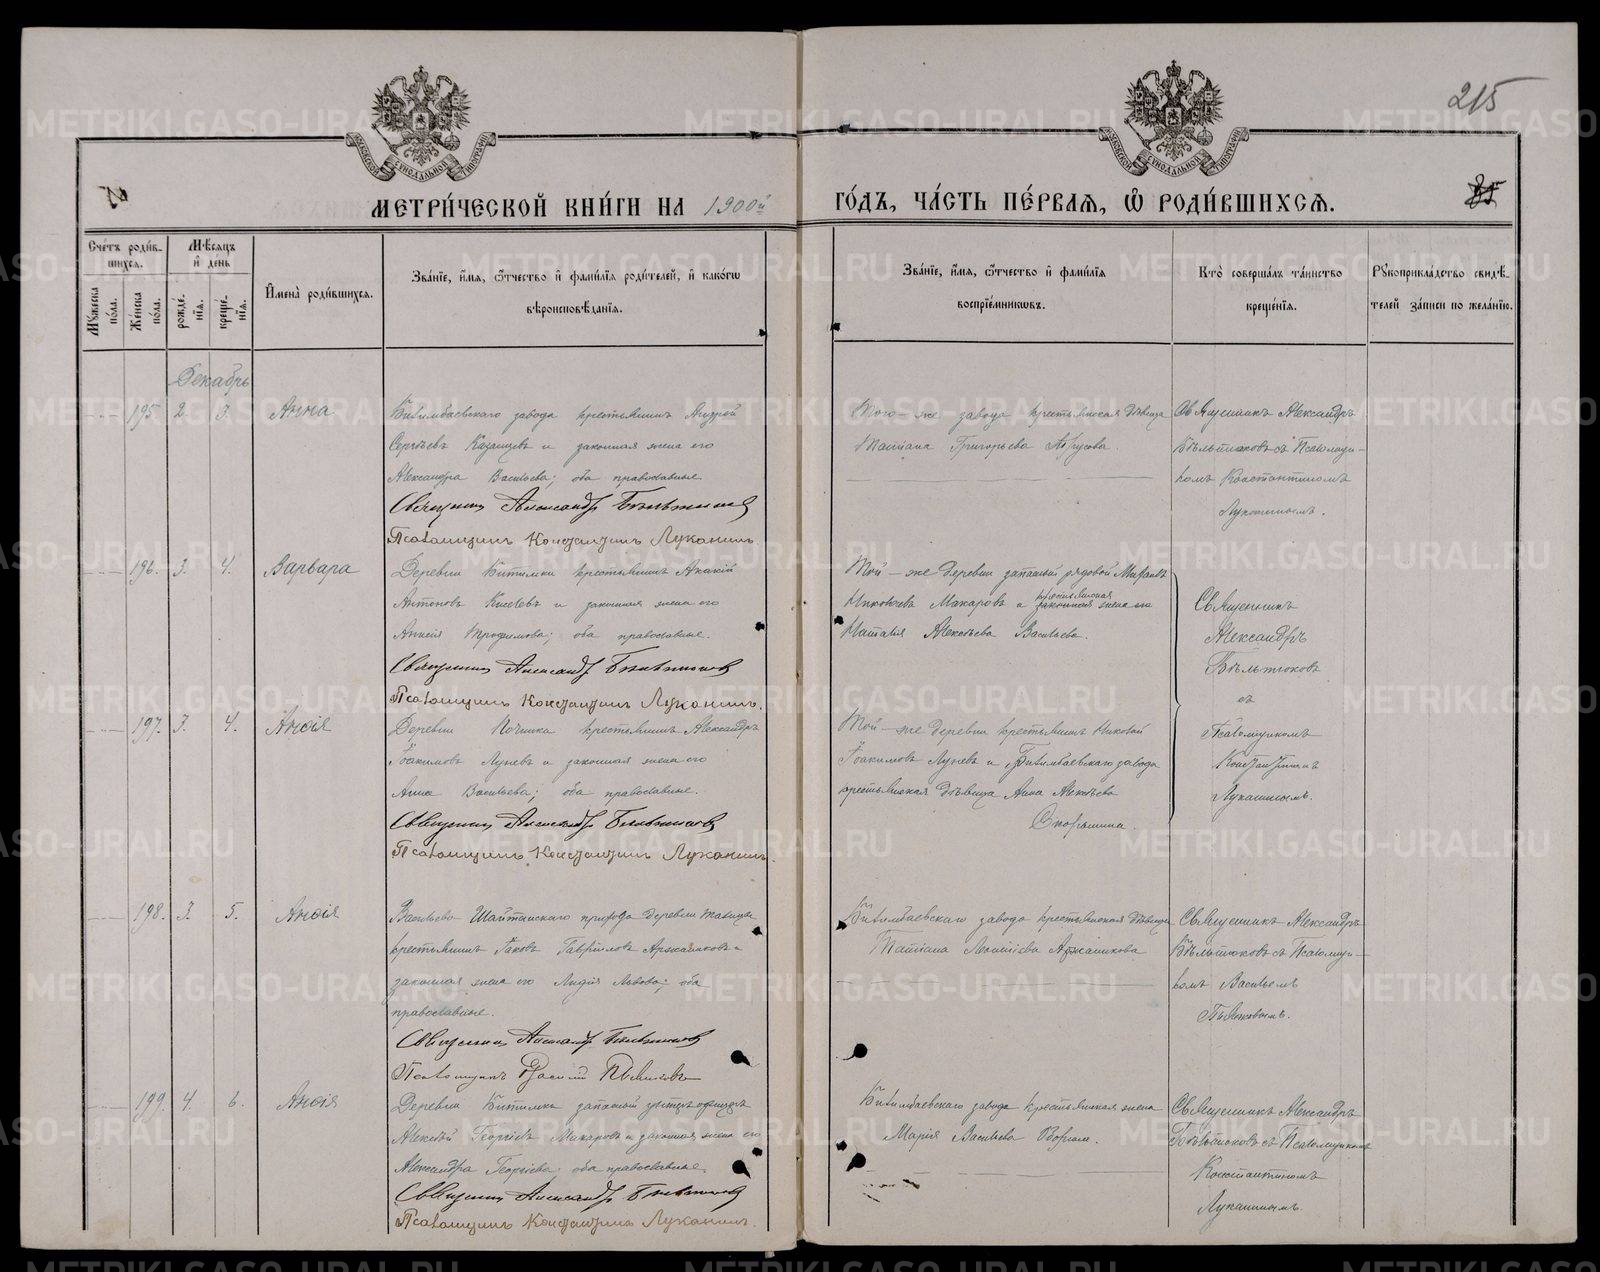 METRIKI.GASO-URAL.RU
215
МОСКОВСКОЙ СѴНОДАЛЬНОЙ ТИПОГРАФІИ
МЕТРИ́ЧЕСКОЙ КНИ́ГИ НА 1900й
ГО́ДЪ, ЧА́СТЬ ПЕ́РВАЯ, Ѽ РОДИ́ВШИХСЯ.
Сче́тъ роди́вшихся.
Му́жеска по́ла.
Же́нска по́ла.
Мѣ́сяцъ и҆ день
рожде́нїя.
креще́нїя.
И҆мена̀ роди́вшихся.
Зва́нїе, и҆́мя, ѻ҆́тчество и҆ фами́лїя роди́телей, и҆ како́гѡ вѣроисповѣ́данїя.
Зва́нїе, и҆́мя, ѻ҆́тчество и҆ фами́лїя воспрїе́мникѡвъ.
Кто̀ соверша́лъ та́инство креще́нїя.
Рꙋкоприкла́дство свидѣ́телей за́писи по жела́нїю.
Декабрь
195 2. 3. Анна
Билимбаевскаго завода крестьянинъ Андрей
Сергѣевъ Казанцевъ и законная жена его
Александра Васильева; оба православные.
Священникъ Александръ Бѣльтюковъ
Псаломщикъ Константинъ Луканинъ.
Того-же завода крестьянская дѣвица
Татіана Григорьева
Священникъ Александръ
Бѣльтюковъ съ Псаломщи-
комъ Константиномъ
Луканинымъ.
196. 3. 4. Варвара
Деревни Битимки крестьянинъ Акакій
Антоновъ Киселевъ и законная жена его
Анисія Трофимова; оба православные.
Священникъ Александръ Бѣльтюковъ
Псаломщикъ Константинъ Луканинъ.
Той-же деревни запасный рядовой
Макаровъ и крестьянская законная жена его
Наталія Алексѣева Васильева.
Священникъ
Александръ
Бѣльтюковъ
съ
Псаломщикомъ
Константиномъ
Луканинымъ.
197. 3. 4. Анѳія
Деревни Починка крестьянинъ Александръ
Іоакимовъ Луневъ и законная жена его
Анна Васильева; оба православные.
Священникъ Александръ Бѣльтюковъ
Псаломщикъ Константинъ Луканинъ.
Той-же деревни крестьянинъ Николай
Іоакимовъ Луневъ и Билимбаевскаго завода
крестьянская дѣвица Анна Алексѣева
Скорынина.
198. 3. 5. Анѳія
Васильево-Шайтанскаго прихода деревни Талицы
крестьянинъ Іаковъ Гавріиловъ Аржанниковъ и
законная жена его Лидія Львова; оба
православные.
Священникъ Александръ Бѣльтюковъ
Псаломщикъ Василій
Билимбаевскаго завода крестьянская дѣвица
Татіана Аржанникова
Священникъ Александръ
Бѣльтюковъ съ Псаломщи-
комъ Василіемъ
199. 4. 6. Анѳія
Деревни Битимки запасный унтеръ-офицеръ
Алексѣй Георгіевъ Макаровъ и законная жена его
Александра Георгіева; оба православные.
Священникъ Александръ Бѣльтюковъ
Псаломщикъ Константинъ Луканинъ.
Билимбаевскаго завода крестьянская жена
Марія Васильева
Священникъ Александръ
Бѣльтюковъ съ Псаломщикомъ
Константиномъ
Луканинымъ.